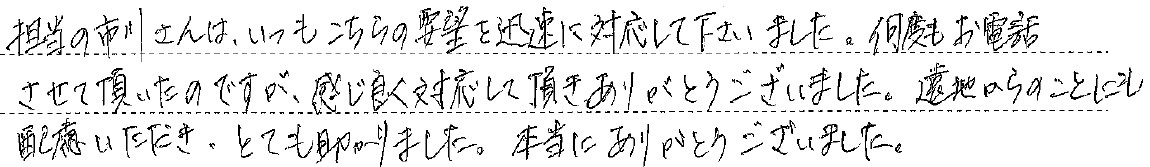 担当の市川さんは、いつもこちらの要望を迅速に対応して下さいました。何度もお電話
させて頂いたのですが、感じ良く対応して頂きありがとうございました。遠地からのことにも
配慮いただき、とても助かりました。本当にありがとうございました。